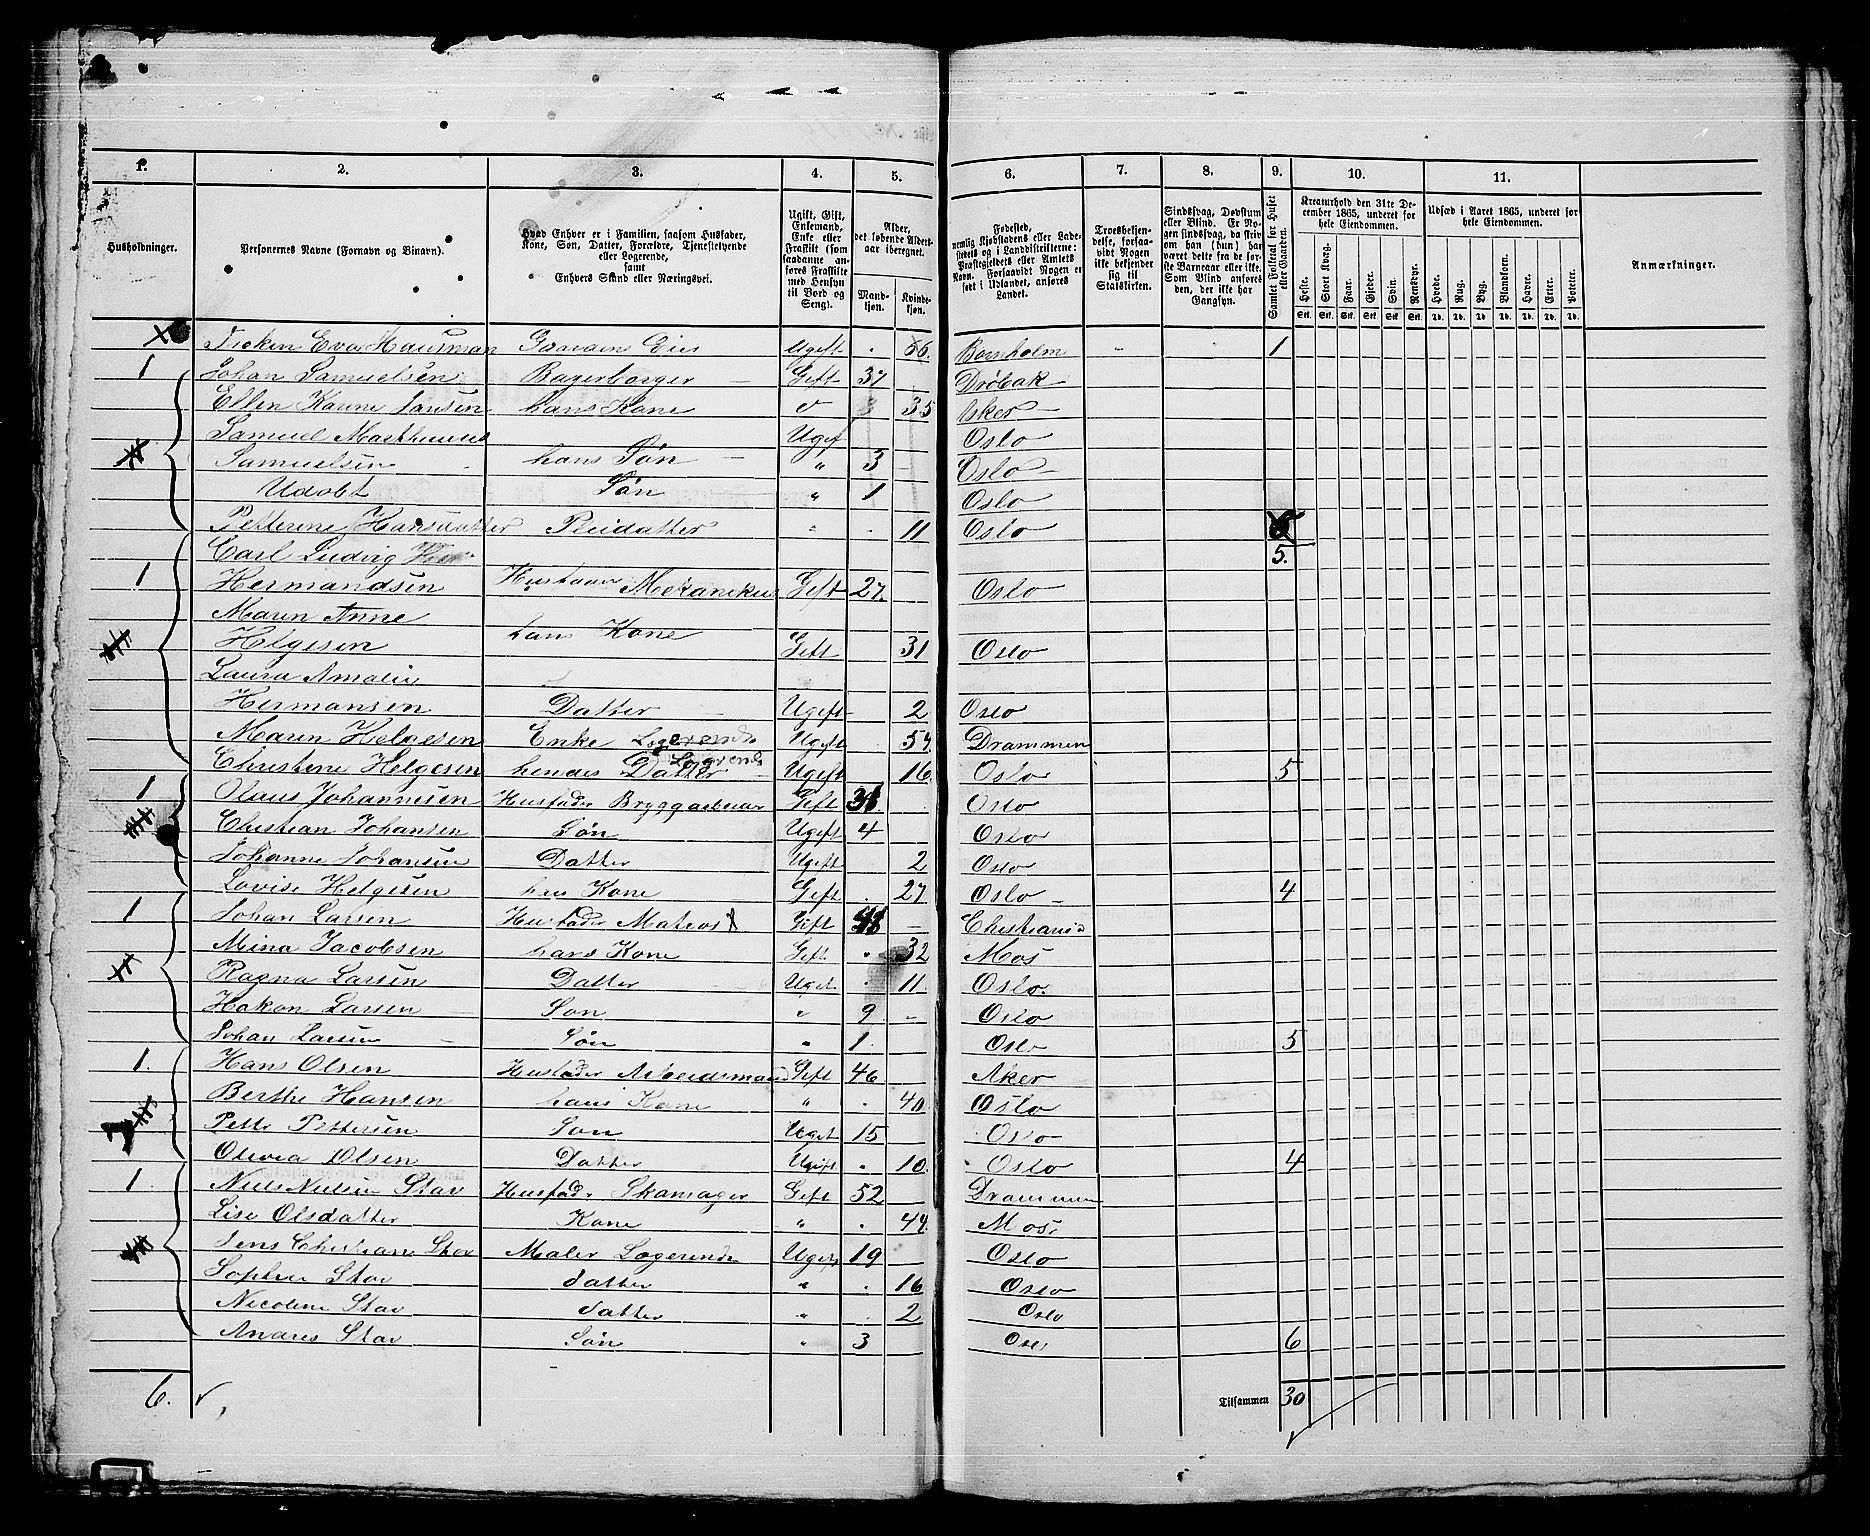 1. 2. 3. 4. 5. 6. 7. 8. 9. 10. 11.
Husholdninger.
Personernes Navne (Fornavn og Binavn).
Hvad Enhver er i Familien, saasom Husfader, Kone, Søn, Datter, Forældre, Tjenestetyende eller Logerende, samt Enhvers Stand eller Næringsvei.
Ugift, Gift, Enkemand, Enke eller Fraskilt (som saadanne anføres Fraskilte med Hensyn til Bord og Seng).
Alder, det løbende Aldersaar iberegnet.
Mandkjøn. Kvindekjøn.
Fødested, nemlig Kjøbstadens eller Ladestedets og i Landdistrikterne: Præstegjeldets eller Amtets Navn. Forsaavidt Nogen er født i Udlandet, anføres Landet.
Troesbekjendelse, forsaavidt Nogen ikke bekjender sig til Statskirken.
Sindssvag, Døvstum eller Blind. Er Nogen sindssvag, da skriv om han (hun) har været dette fra de første Barneaar eller ikke. Som Blind anføres den, der ikke har Gangsyn.
Samlet Folketal for Huset eller Gaarden.
Kreaturhold den 31te December 1865, underet for hele Eiendommen.
Heste. Stort Kvæg. Faar. Gjeder. Svin. Rensdyr.
Udsæd i Aaret 1865, underet for hele Eiendommen.
Hvede. Rug. Byg. Blandkorn. Havre. Erter. Poteter.
Anmærkninger.
Eva Hausman Ugift 66. Bornholm 1
1 Johan Samuelsen Bagerborger Gift 37 Drøbak
Ellen Karine Jansen hans Kone 35 Aker
Samuel Matheus Ugif Oslo
Samuelsen hans Søn " 3 Oslo
Udøbt Søn " 1 Oslo
Petterine Hansdatter Pleidatter " 11 Oslo
Carl Ludvig 5.
1 Hermandsen Mekanikus Gift 27. Oslo
Maren Anne
Helgesen hans Kone Gift 31 Oslo
Laura Amalie
Hermansen Datter Ugift 2 Oslo
Maren Helgesen Enke Logerende Ugift 57. Drammen
Christine Helgesen hendes Datter Logerende Ugift 16. Oslo 5
1 Olaus Johannesen Husfader Gift Oslo
Christian Johansen Søn Ugift 4 Oslo
Johanne Johansen Datter Ugift 2 Oslo
Lovise Helgesen hans Kone Gift 27 Oslo 4
1 Johan Larsen Husfader Matros Gift Christiania
Mina Jacobsen hans Kone Gift 32 Mos
Ragna Larsen Datter Uget 11. Oslo.
Hakon Larsen Son " 9 Oslo
Johan Larsen Søn " 1. Oslo 5
1. Hans Olsen Husfader Arbeidsmand Gift 46 Aker
Berthe Hansen hans Kone " 40. Oslo
Petter Pettersen Son Uget 15 Oslo
Olivia Olsen Datter Ugift 10. Oslo 4
1. Niels Nielsen Stav Husfader Skomager Gift 52 Drammen
Lise Olsdatter Kone " 44. Mos
Jens Christian Stav Maler Logerende Ugift 19 Oslo
Sophie Stav datter " 16 Oslo
Nicoline Stav datter " 2 Oslo
Andres Stav Søn " 3 Oslo 6
6. Tilsammen 30